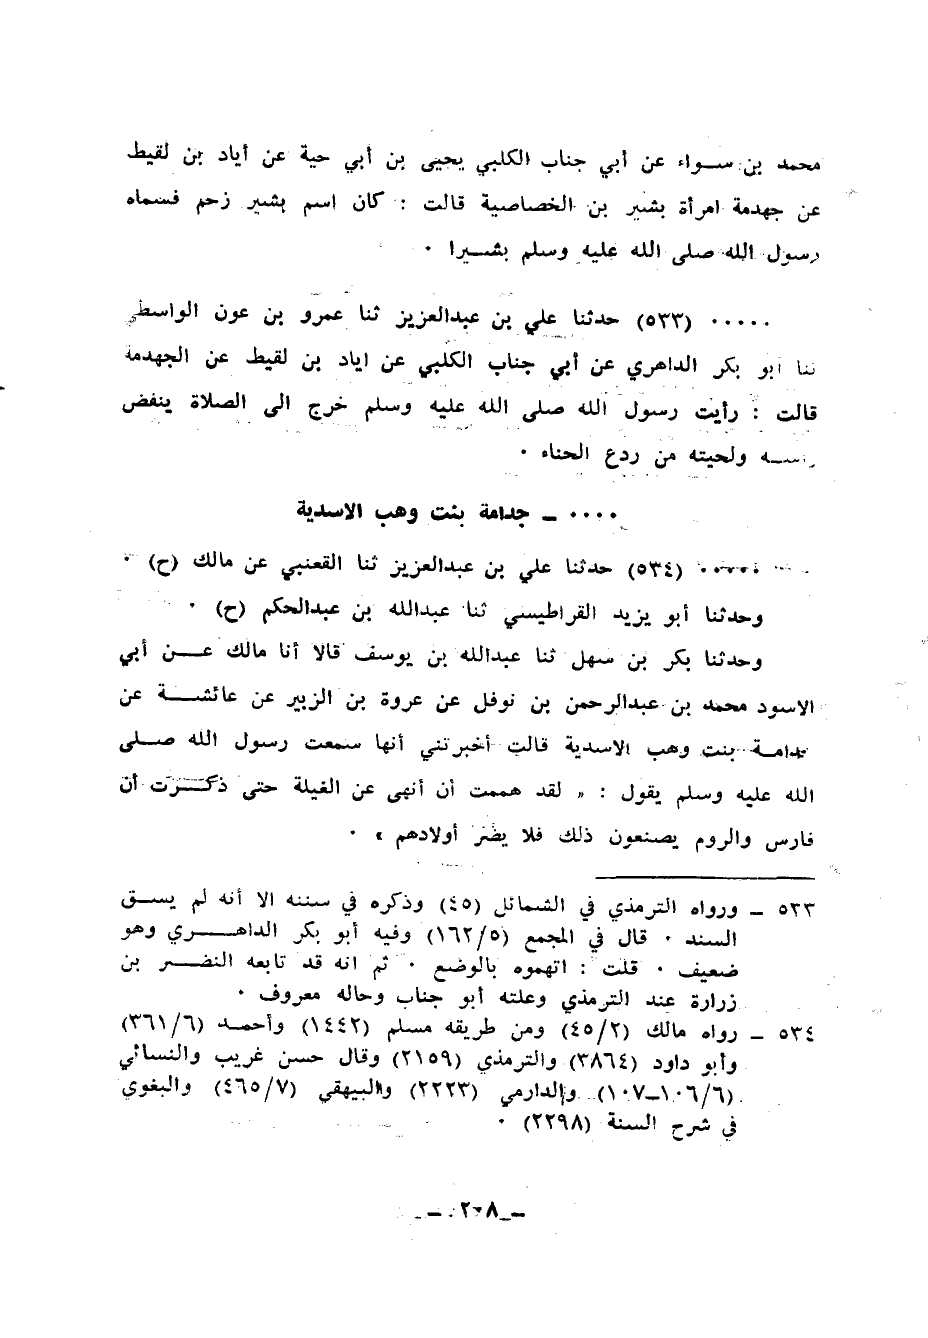 محمد بن سواء عن أبي جناب الكلبي يحيى بن أبي حية عن أياد بن لقيط
عن جهدمة امرأة بشير بن الخصاصية قالت : كان اسم بشير زحم فسماه
رسول الله صلى الله عليه وسلم بشيرا ٠
٠٠٠٠٠ (٥٣٣) حدثنا علي بن عبدالعزيز ثنا عمرو بن عون الواسطي
ثنا ابو بكر الداهري عن أبي جناب الكلبي عن اياد بن لقيط عن الجهدمة
قالت : رأيت رسول الله صلى الله عليه وسلم خرج الى الصلاة ينفض
رأسه ولحيته من ردع الحناء ٠
٠٠٠٠ ــ جدامة بنت وهب الاسدية
٠٠٠٠٠ (٥٣٤) حدثنا علي بن عبدالعزيز ثنا القعنبي عن مالك (ح) ٠
وحدثنا أبو يزيد القراطيسي ثنا عبدالله بن عبدالحكم (ح) ٠
وحدثنا بكر بن سهل ثنا عبدالله بن يوسف قالا أنا مالك عن أبي
الاسود محمد بن عبدالرحمن بن نوفل عن عروة بن الزبير عن عائشة عن
جدامة بنت وهب الاسدية قالت أخبرتني أنها سمعت رسول الله صلى
الله عليه وسلم يقول : « لقد هممت أن أنهى عن الغيلة حتى ذكرت أن
فارس والروم يصنعون ذلك فلا يضر أولادهم » ٠
٥٣٣ ــ ورواه الترمذي في الشمائل (٤٥) وذكره في سننه الا أنه لم يسق
السند ٠ قال في المجمع (١٦٢/٥) وفيه أبو بكر الداهري وهو
ضعيف ٠ قلت : اتهموه بالوضع ٠ ثم انه قد تابعه النضر بن
زرارة عند الترمذي وعلته أبو جناب وحاله معروف ٠
٥٣٤ ــ رواه مالك (٤٥/٢) ومن طريقه مسلم (١٤٤٢) وأحمد (٣٦١/٦)
وأبو داود (٣٨٦٤) والترمذي (٢١٥٩) وقال حسن غريب والنسائي
(١٠٦/٦ــ١٠٧) والدارمي (٢٢٢٣) والبيهقي (٤٦٥/٧) والبغوي
في شرح السنة (٢٢٩٨) ٠
ــ ٢٠٨ ــ